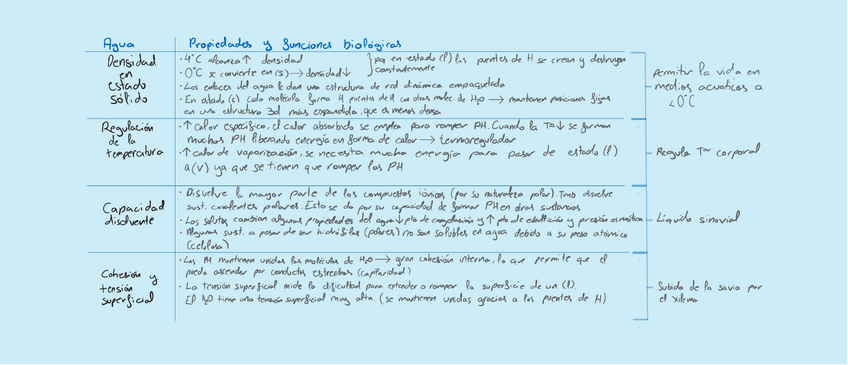 Agua
Propiedades y funciones biológicas
Densidad
en
estado
sólido
· 4°C alcanza ↑ densidad
· 0°C se convierte en (s) → densidad ↓
pq en estado (l) los puentes de H se crean y destruyen
constantemente
· Los enlaces del agua le dan una estructura de red dinámica empaquetada
· En estado (s) cada molécula forma 4 puentes de H con otras molec de H2O → mantienen posiciones fijas
en una estructura 3d más expandida, que es menos densa
Permitir la vida en
medios acuáticos a
<0°C
Regulación
de la
temperatura
· ↑ calor específico, el calor absorbido se emplea para romper PH. Cuando la Ta ↓ se forman
muchos PH liberando energía en forma de calor → termorregulador
· ↑ calor de vaporización, se necesita mucha energía para pasar de estado (l)
a (v) ya que se tienen que romper los PH
Regula Tª corporal
Capacidad
disolvente
· Disuelve la mayor parte de los compuestos iónicos (por su naturaleza polar). Tmb disuelve
sust. covalentes polares. Esto se da por su capacidad de formar PH en otras sustancias
· Los solutos cambian algunas propiedades del agua ↓ pto de congelación y ↑ pto de ebullición y presión osmótica
· Algunas sust. a pesar de ser hidrófilas (polares) no son solubles en agua debido a su peso atómico
(celulosa)
Líquido sinovial
Cohesión y
tensión
superficial
· Los PH mantienen unidas las moléculas de H2O → gran cohesión interna, lo que permite que el
pueda ascender por conductos estrechos (capilaridad)
· La tensión superficial mide la dificultad para extender o romper la superficie de un (l).
El H2O tiene una tensión superficial muy alta. (se mantienen unidas gracias a los puentes de H)
Subida de la savia por
el xilema